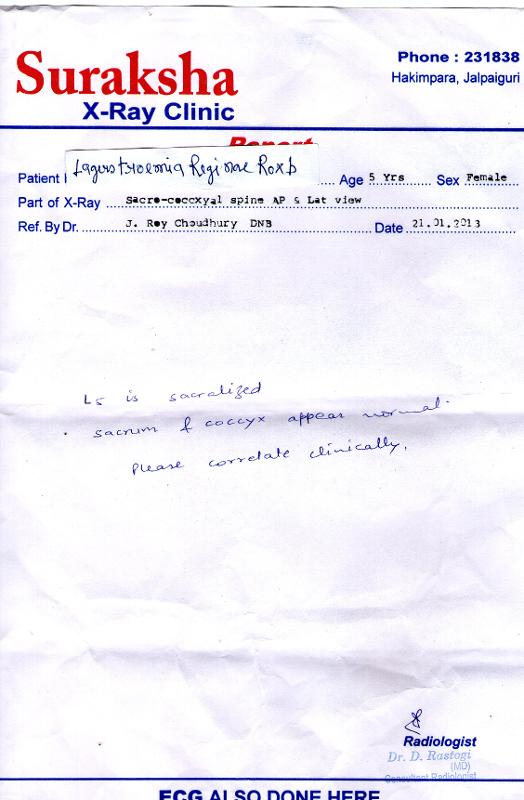 Suraksha
X-Ray Clinic
Phone : 231838
Hakimpara, Jalpaiguri
Report
Patient Lagerstroemia Reginae Roxb Age 5 Yrs Sex Female
Part of X-Ray Sacro-coccxyal spine AP & Lat view
Ref. By Dr. J. Roy Choudhury DNB Date 21.01.2013
L5 is sacralized
sacrum & coccyx appear normal.
Please correlate clinically.
Radiologist
Dr. D. Rastogi
(MD)
Consultant Radiologist
ECG ALSO DONE HERE